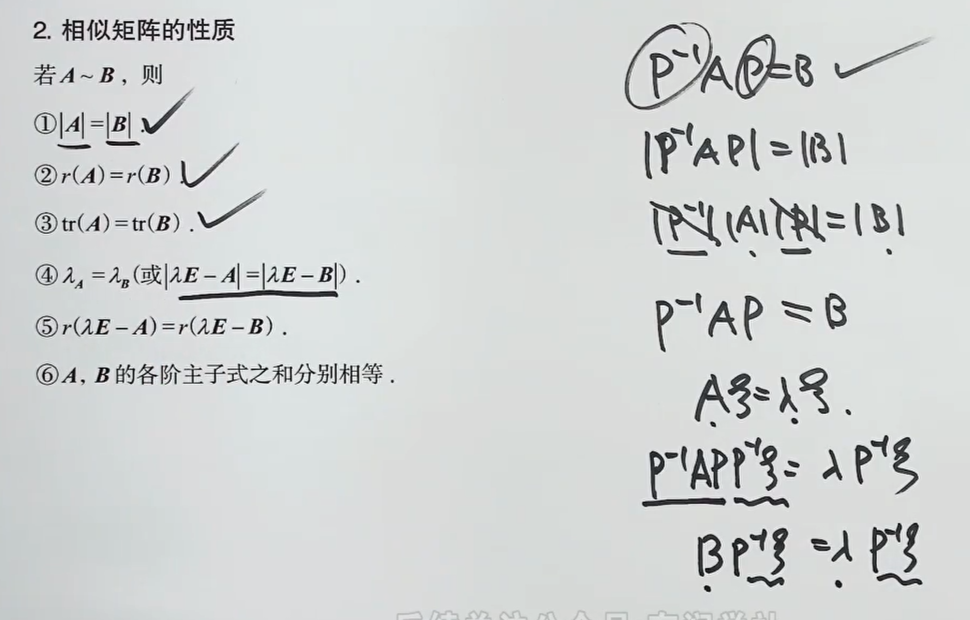 2. 相似矩阵的性质
若 A ~ B , 则
①|A|=|B|.
②r(A)=r(B).
③tr(A)=tr(B).
④λ_A=λ_B(或|λE-A|=|λE-B|).
⑤r(λE-A)=r(λE-B).
⑥A, B的各阶主子式之和分别相等.
P⁻¹AP=B
|P⁻¹AP|=|B|
|P⁻¹||A||P|=|B|
P⁻¹AP=B
Aξ=λξ.
P⁻¹APP⁻¹ξ=λP⁻¹ξ
BP⁻¹ξ=λP⁻¹ξ